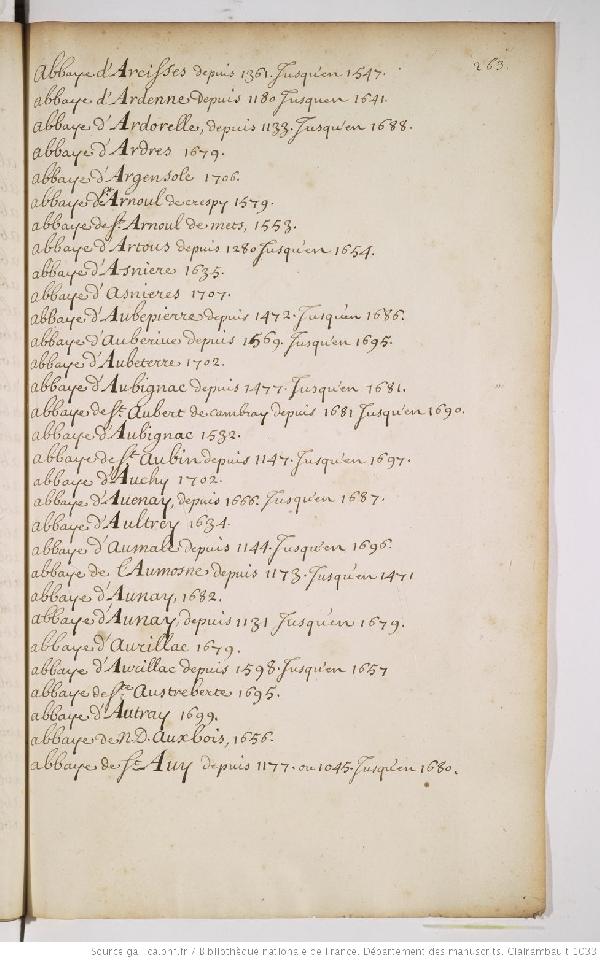 263.
abbaye d'Arcisses depuis 1361. Jusqu'en 1547.
abbaye d'Ardenne depuis 1180 Jusqu'en 1641.
abbaye d'Ardorelle, depuis 1133. Jusqu'en 1688.
abbaye d'Ardres 1679.
abbaye d'Argensole 1706.
abbaye dSt Arnoul de crespy 1579.
abbaye de St Arnoul de mets, 1553.
abbaye d'Artous depuis 1280 Jusqu'en 1654.
abbaye d'Asniere 1635.
abbaye d'asnieres 1707.
abbaye d'Aubepierre depuis 1472. Jusqu'en 1686.
abbaye d'auberiue depuis 1569. Jusqu'en 1695.
abbaye d'Aubeterre 1702.
abbaye d'Aubignac depuis 1477. Jusqu'en 1681.
abbaye de St Aubert de cambray depuis 1681 Jusqu'en 1690.
abbaye d'Aubignac 1532.
abbaye de St Aubin depuis 1147. Jusqu'en 1697.
abbaye d'Auchy 1702.
abbaye d'Auenay, depuis 1666. Jusqu'en 1687.
abbaye d'Aultrey 1634.
abbaye d'aumale depuis 1144. Jusqu'en 1696.
abbaye de l'Aumosne depuis 1173. Jusqu'en 1471
abbaye d'Aunay, 1682.
abbaye d'Aunay, depuis 1131 Jusqu'en 1679.
abbaye d'aurillac 1679.
abbaye d'Aurillac depuis 1598. Jusqu'en 1657
abbaye de Ste Austreberte 1695.
abbaye d'Autray 1699.
abbaye de N.D. auxbois, 1656.
abbaye de St Auy depuis 1177. ou 1045. Jusqu'en 1680.
Source gallica.bnf.fr / Bibliothèque nationale de France. Département des manuscrits. Clairambault 1033